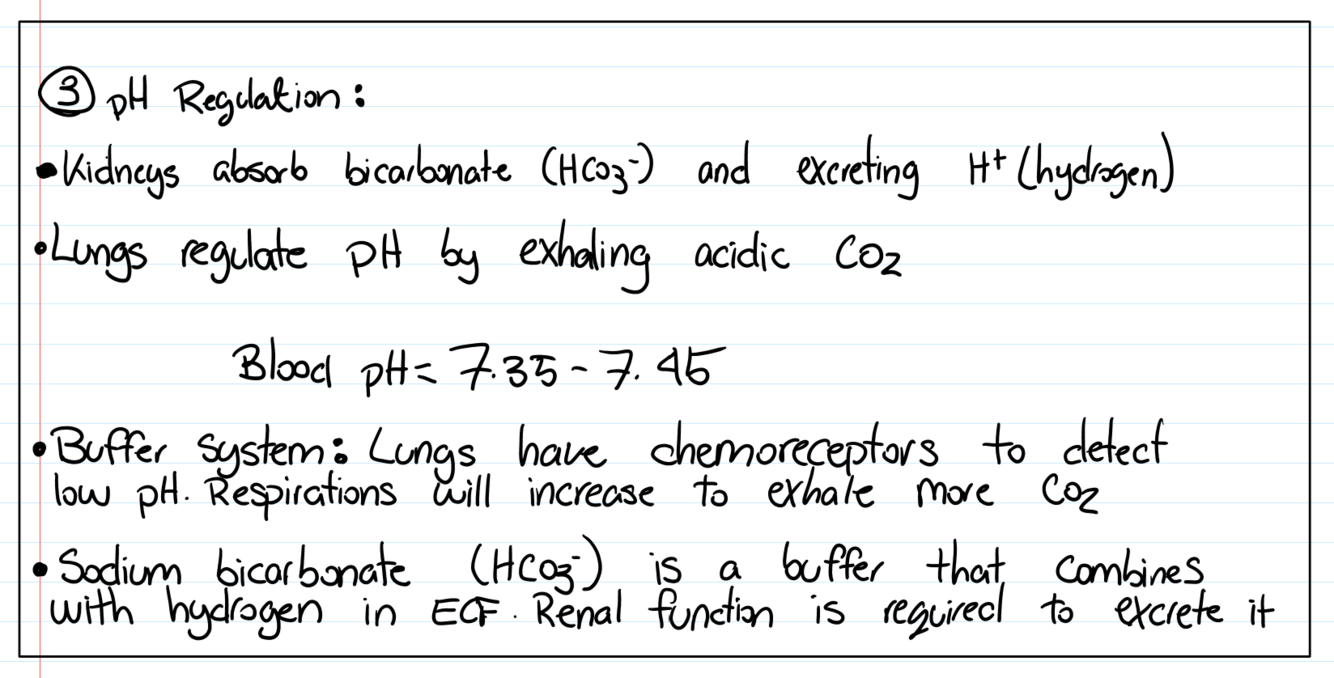 ③ pH Regulation:
• Kidneys absorb bicarbonate (HCO₃⁻) and excreting H⁺ (hydrogen)
• Lungs regulate pH by exhaling acidic CO₂
Blood pH = 7.35 - 7.45
• Buffer system: Lungs have chemoreceptors to detect
low pH. Respirations will increase to exhale more CO₂
• Sodium bicarbonate (HCO₃⁻) is a buffer that combines
with hydrogen in ECF. Renal function is required to excrete it